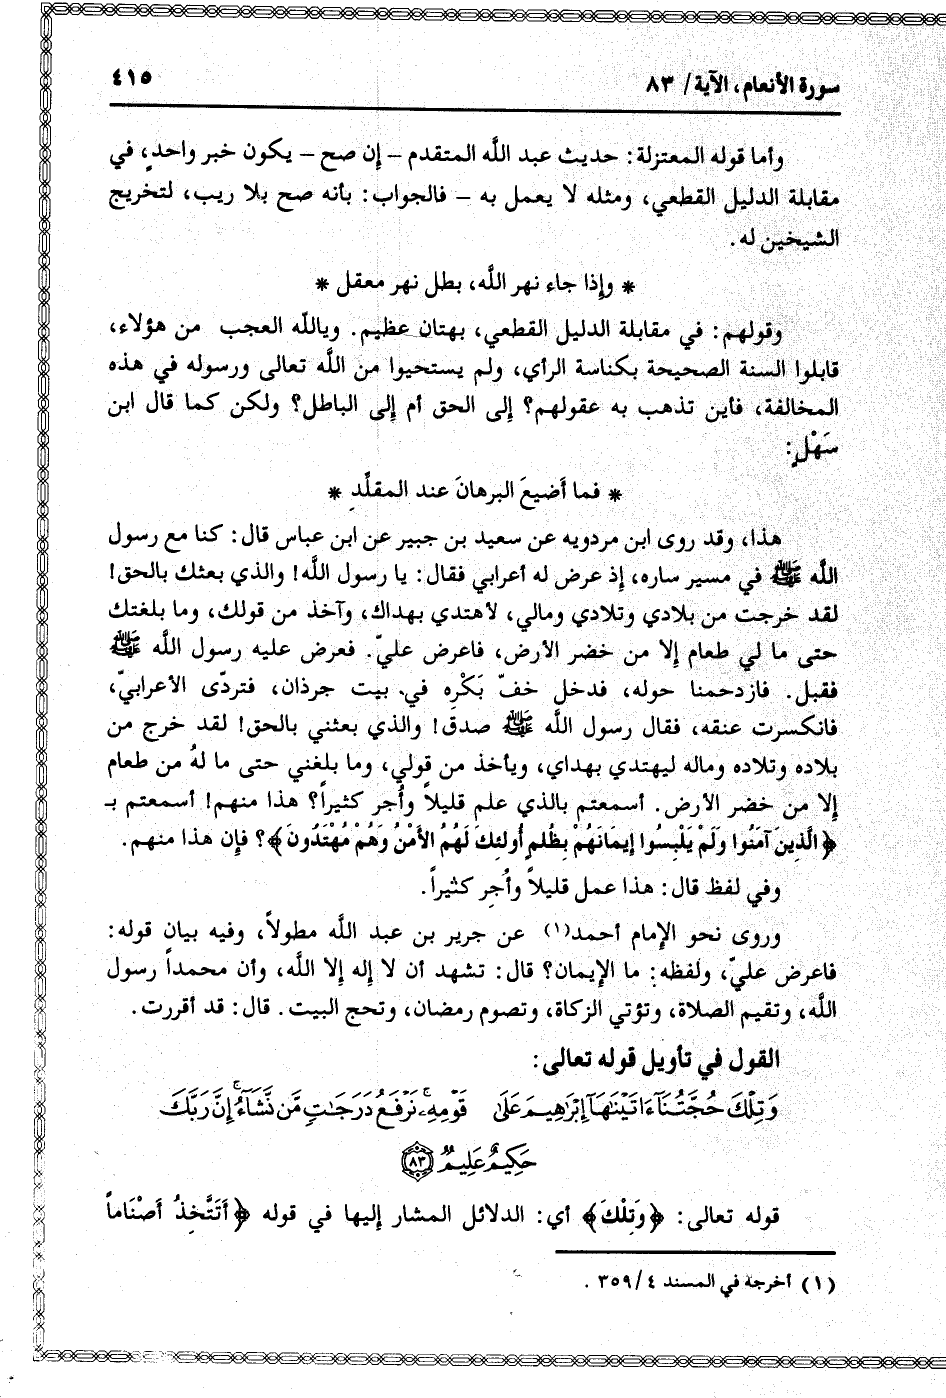 سورة الأنعام، الآية/ ٨٣
٤١٥
وأما قوله المعتزلة: حديث عبد الله المتقدم – إن صح – يكون خبر واحدٍ، في
مقابلة الدليل القطعي، ومثله لا يعمل به – فالجواب: بأنه صح بلا ريب، لتخريج
الشيخين له.
* وإذا جاء نهر الله، بطل نهر معقل *
وقولهم: في مقابلة الدليل القطعي، بهتان عظيم. ويالله العجب من هؤلاء،
قابلوا السنة الصحيحة بكناسة الرأي، ولم يستحيوا من الله تعالى ورسوله في هذه
المخالفة، فأين تذهب به عقولهم؟ إلى الحق أم إلى الباطل؟ ولكن كما قال ابن
سَهْلٍ:
* فما أضيعَ البرهانَ عند المقلِّدِ *
هذا، وقد روى ابن مردويه عن سعيد بن جبير عن ابن عباس قال: كنا مع رسول
الله ﷺ في مسير ساره، إذ عرض له أعرابي فقال: يا رسول الله! والذي بعثك بالحق!
لقد خرجت من بلادي وتلادي ومالي، لأهتدي بهداك، وآخذ من قولك، وما بلغتك
حتى ما لي طعام إلا من خضر الأرض، فاعرض عليّ. فعرض عليه رسول الله ﷺ
فقبل. فازدحمنا حوله، فدخل خفّ بَكْرِه في بيت جرذان، فتردّى الأعرابيّ،
فانكسرت عنقه، فقال رسول الله ﷺ صدق! والذي بعثني بالحق! لقد خرج من
بلاده وتلاده وماله ليهتدي بهداي، ويأخذ من قولي، وما بلغني حتى ما لهُ من طعام
إلا من خضر الأرض. أسمعتم بالذي علم قليلاً وأُجر كثيراً؟ هذا منهم! أسمعتم بـ
﴿الَّذِينَ آمَنُوا وَلَمْ يَلْبِسُوا إِيمَانَهُمْ بِظُلمٍ أُولئِكَ لَهُمُ الأَمْنُ وَهُمْ مُهْتَدُونَ﴾؟ فإن هذا منهم.
وفي لفظ قال: هذا عمل قليلاً وأُجر كثيراً.
وروى نحو الإمام أحمد(١) عن جرير بن عبد الله مطولاً، وفيه بيان قوله:
فاعرض عليّ، ولفظه: ما الإيمان؟ قال: تشهد أن لا إله إلا الله، وأن محمداً رسول
الله، وتقيم الصلاة، وتؤتي الزكاة، وتصوم رمضان، وتحج البيت. قال: قد أقررت.
القول في تأويل قوله تعالى:
وَتِلْكَ حُجَّتُنَآ ءَاتَيْنَٰهَآ إِبْرَٰهِيمَ عَلَىٰ قَوْمِهِۦ ۚ نَرْفَعُ دَرَجَٰتٍ مَّن نَّشَآءُ ۗ إِنَّ رَبَّكَ
حَكِيمٌ عَلِيمٌ ٨٣
قوله تعالى: ﴿وَتِلْكَ﴾ أي: الدلائل المشار إليها في قوله ﴿أَتَتَّخِذُ أَصْنَاماً
(١) أخرجة في المسند ٤/ ٣٥٩ .